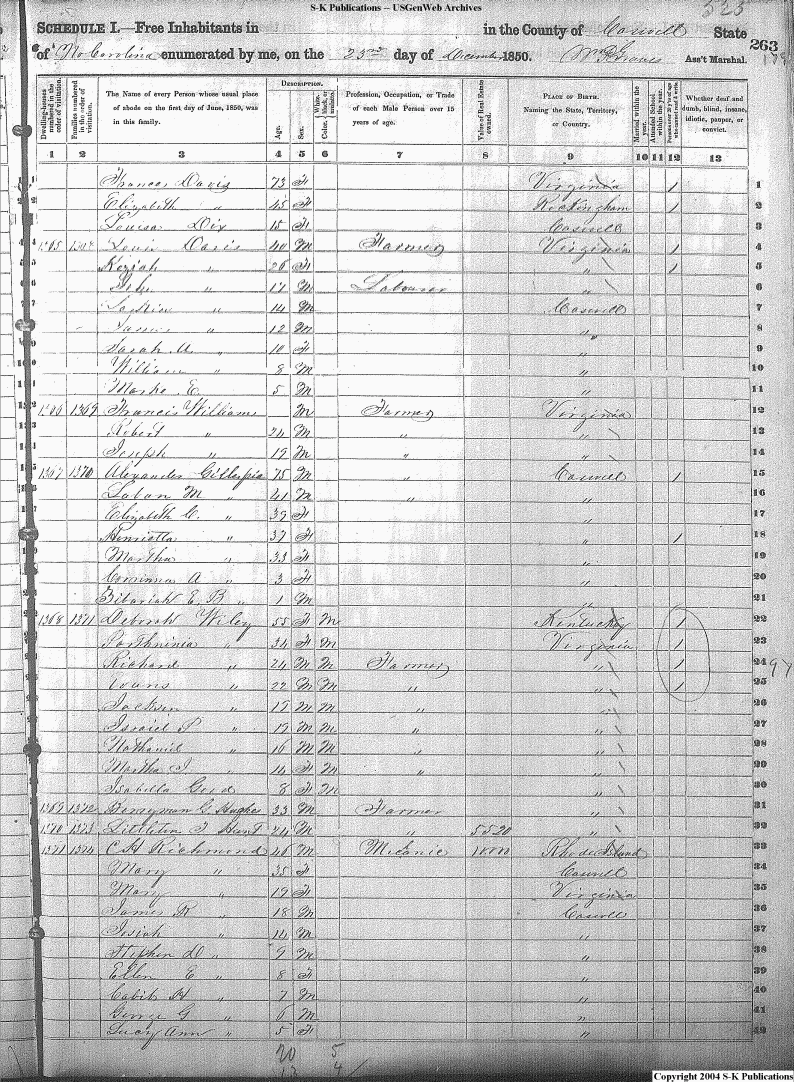 S-K Publications -- USGenWeb Archives
525
SCHEDULE I.—Free Inhabitants in in the County of Caswell State
of No Carolina enumerated by me, on the 23rd day of December 1850. Ass't Marshal. 263
Dwelling-houses numbered in the order of visitation.
Families numbered in the order of visitation.
The Name of every Person whose usual place of abode on the first day of June, 1850, was in this family.
DESCRIPTION.
Age.
Sex.
Color, White, black, or mulatto.
Profession, Occupation, or Trade of each Male Person over 15 years of age.
Value of Real Estate owned.
PLACE OF BIRTH.
Naming the State, Territory, or Country.
Married within the year.
Attended School within the year.
Persons over 20 y'rs of age who cannot read & write.
Whether deaf and dumb, blind, insane, idiotic, pauper, or convict.
1 2 3 4 5 6 7 8 9 10 11 12 13
1 Frances Davis 73 F Virginia / 1
2 Elizabeth " 45 F Rockingham / 2
3 Louisa Dix 15 F Caswell 3
4 Davis 40 M Farmer Virginia / 4
5 Keziah " 26 F " / 5
6 " 17 M Labourer " 6
7 " 14 M Caswell 7
8 James " 12 M " 8
9 Sarah A " 10 F " 9
10 William " 8 M " 10
11 E 5 M " 11
12 1366 1369 Francis Williams M Farmer Virginia 12
13 Robert " 24 M " " 13
14 Joseph " 19 M " " 14
15 1367 1370 Alexander Gillaspia 75 M " Caswell / 15
16 Laban M " 41 M " " 16
17 Elizabeth C. " 39 F " 17
18 Henrietta " 37 F " / 18
19 Martha " 33 F " 19
20 A " 3 F " 20
21 E B " 1 M " 21
22 1368 1371 Deborah Wiley 55 F M Kentucky / 22
23 " 34 F M Virginia / 23
24 Richard " 24 M M Farmer " / 24 97
25 " 22 M M " " / 25
26 Jackson " 19 M M " " 26
27 Israel P " 19 M M " " 27
28 Nathaniel " 16 M M " " 28
29 Martha J " 14 F M " " 29
30 Isabella 8 F M " 30
31 1369 1372 Berryman G. Hughes 33 M Farmer " 31
32 1370 1373 Littleton J Hunt 24 M " 5520 " 32
33 1371 1374 C H Richmond 46 M Mecanic Rhode Island 33
34 Mary " 35 F Caswell 34
35 Mary " 19 F Virginia 35
36 James " 18 M Caswell 36
37 Josiah " 14 M " 37
38 Stephen D " 9 M " 38
39 Ellen E " 8 F " 39
40 H " 7 M " 40
41 George G " 6 M " 41
42 Lucy Ann " 5 F " 42
20 5
Copyright 2004 S-K Publications